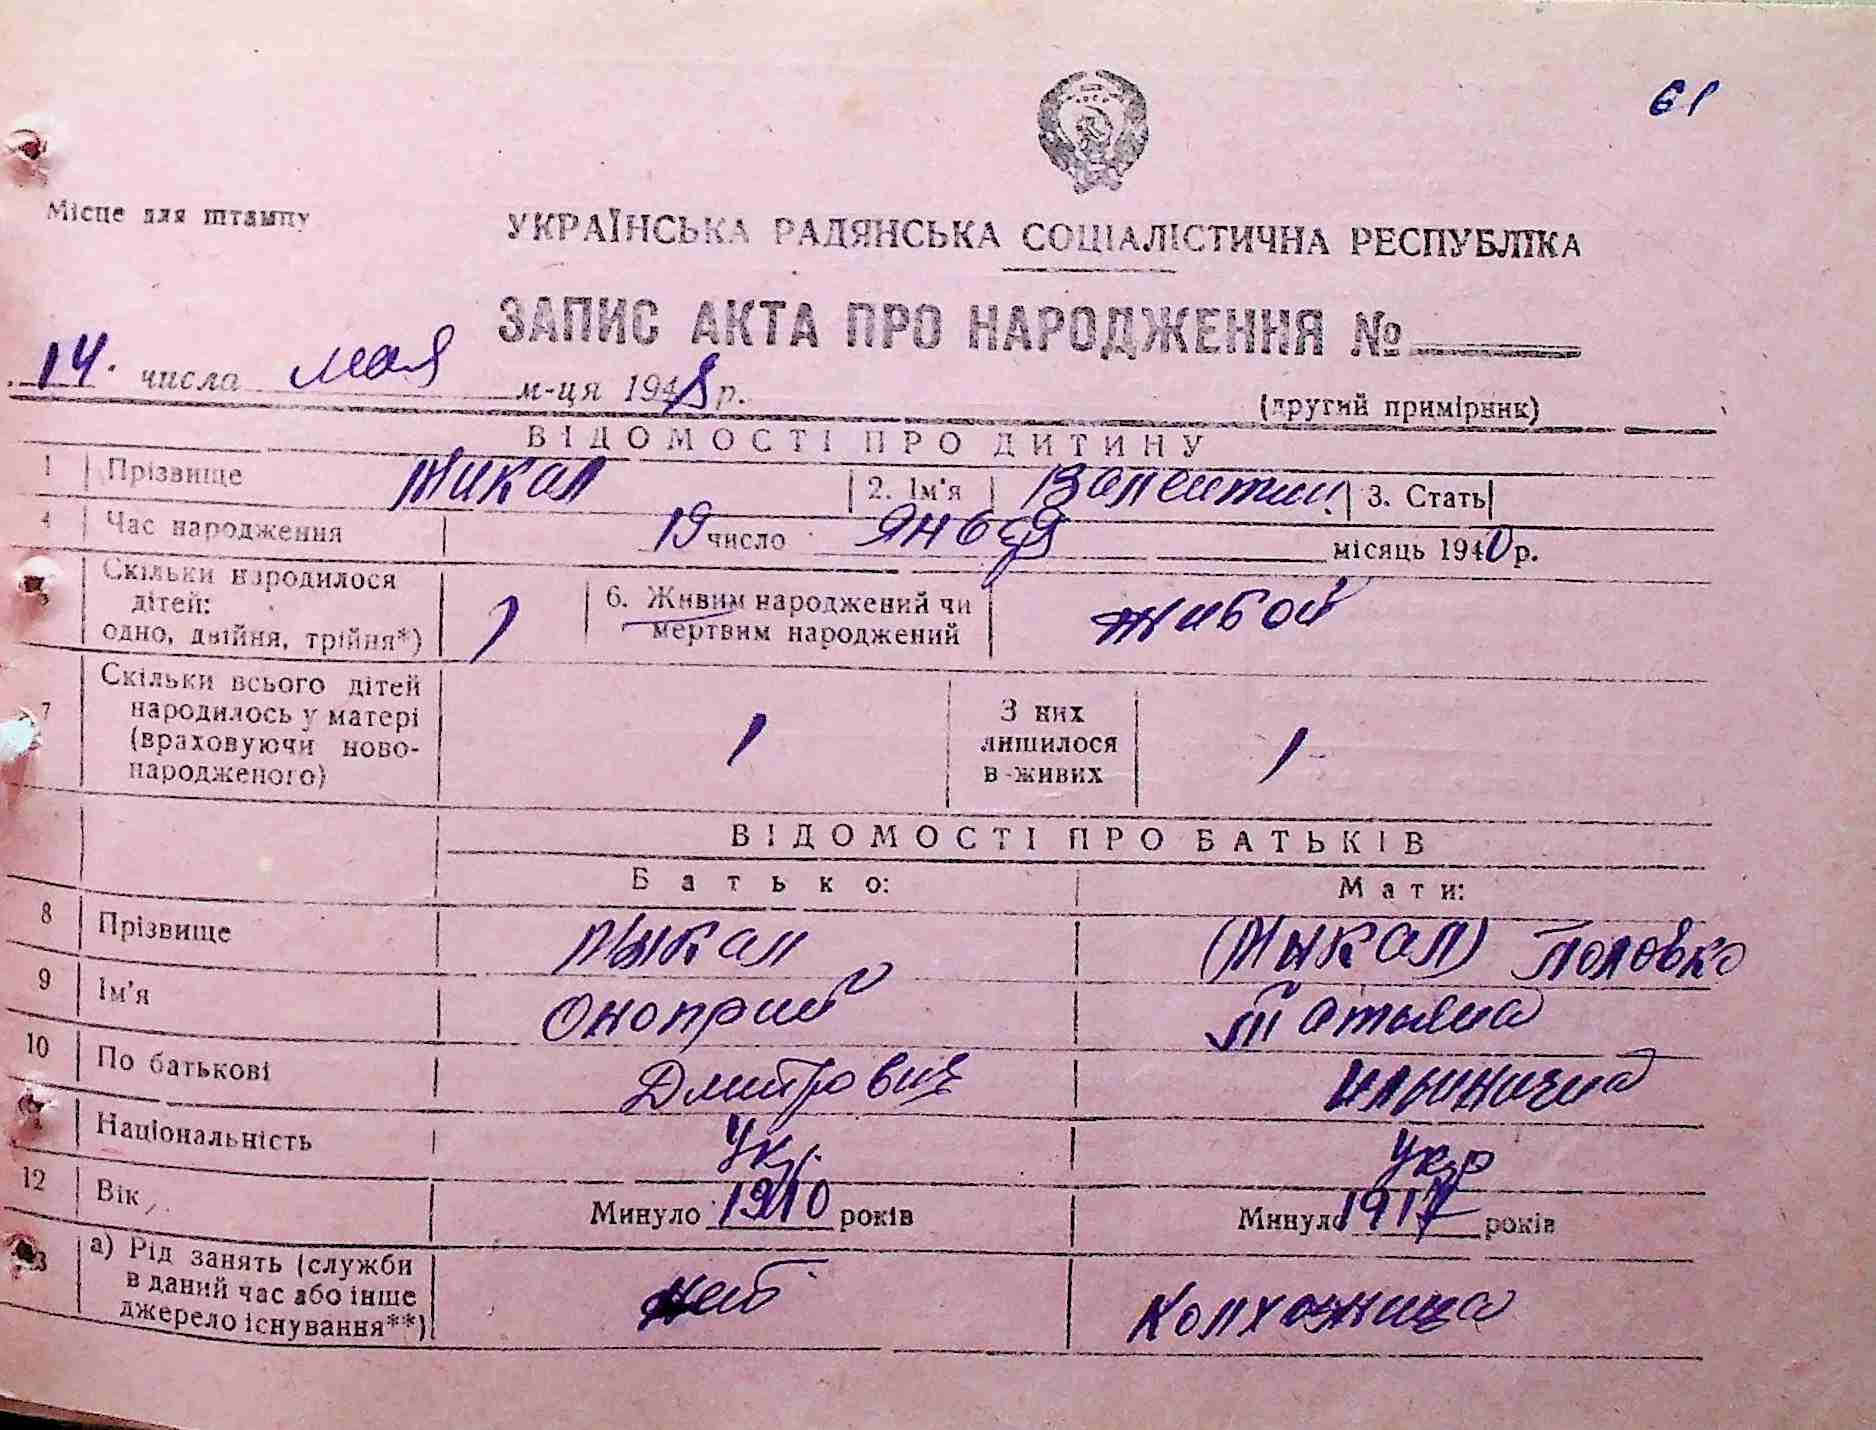 61
Місце для штампу
УКРАЇНСЬКА РАДЯНСЬКА СОЦІАЛІСТИЧНА РЕСПУБЛІКА
ЗАПИС АКТА ПРО НАРОДЖЕННЯ №
14. числа мая м-ця 1948 р.
(другий примірник)
ВІДОМОСТІ ПРО ДИТИНУ
1 Прізвище 2. Ім'я Валентин 3. Стать
4 Час народження 19 число января місяць 1940 р.
Скільки народилося
дітей:
одно, двійня, трійня*) 1
6. Живим народжений чи
мертвим народжений живой
7 Скільки всього дітей
народилось у матері
(враховуючи ново-
народженого) 1
З них
лишилося
в живих 1
ВІДОМОСТІ ПРО БАТЬКІВ
Батько: Мати:
8 Прізвище Половко
9 Ім'я Оноприй Татьяна
10 По батькові Дмитрович Ильинична
Національність Укр. Укр
12 Вік Минуло 1910 років Минуло 1917 років
а) Рід занять (служби
в даний час або інше
джерело існування**) нет колхозница